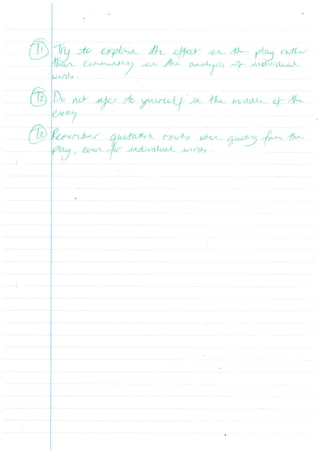 T1 Try to explain the effect on the play rather
than commenting on the analysis of individual
words.
T2 Do not refer to yourself in the middle of the
essay
T3 Remember quotation marks when quoting from the
play, even for individual words.